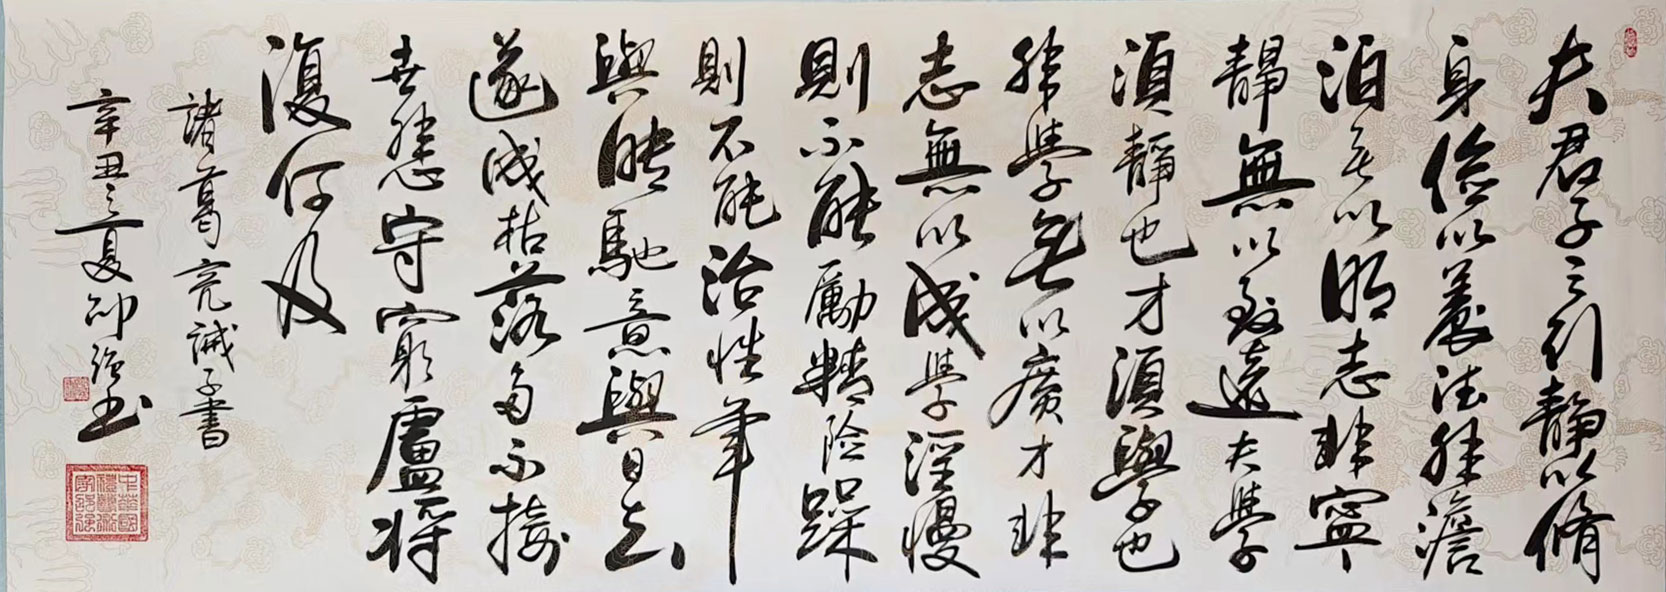 夫君子之行静以脩
身儉以養德非澹
泊无以明志非寧
靜無以致遠夫學
須靜也才須學也
非學无以廣才非
志無以成學淫慢
則不能勵精險躁
則不能治性年
與時馳意與日去
遂成枯落多不接
世悲守窮廬將
復何及
諸葛亮誡子書
辛丑之夏邵强书
中華國
禮藝術
家邵強